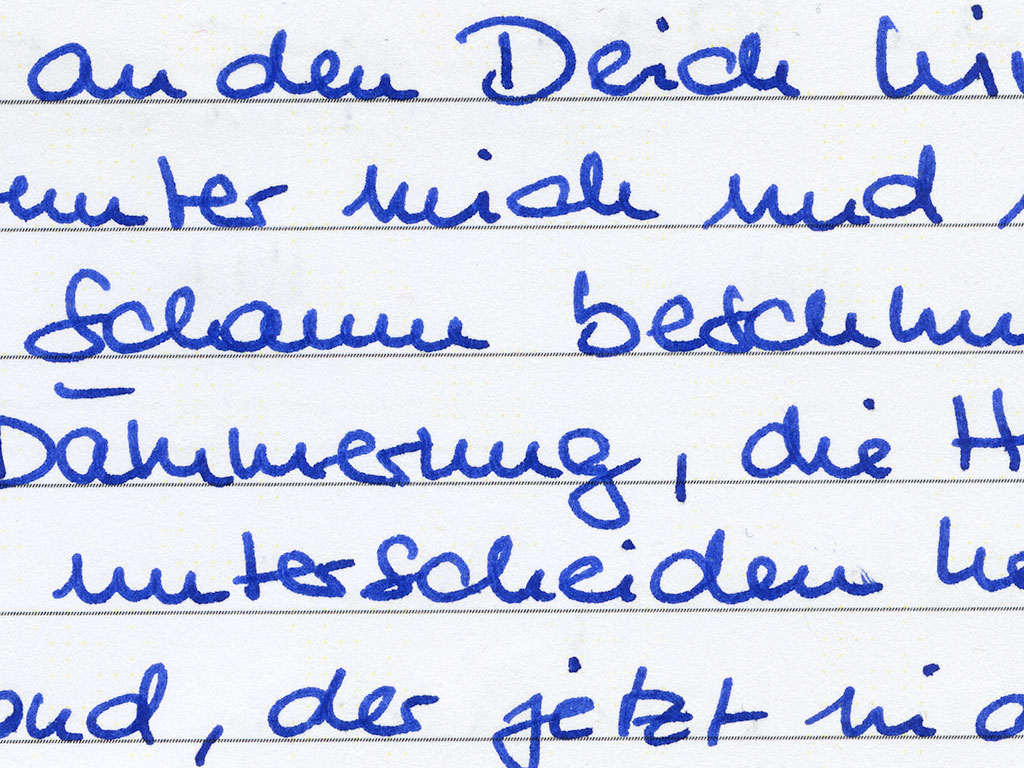 an den Deich hin
unter mich und
schaum beschm
Dämmerung, die H
unterscheiden
ond, der jetzt nic